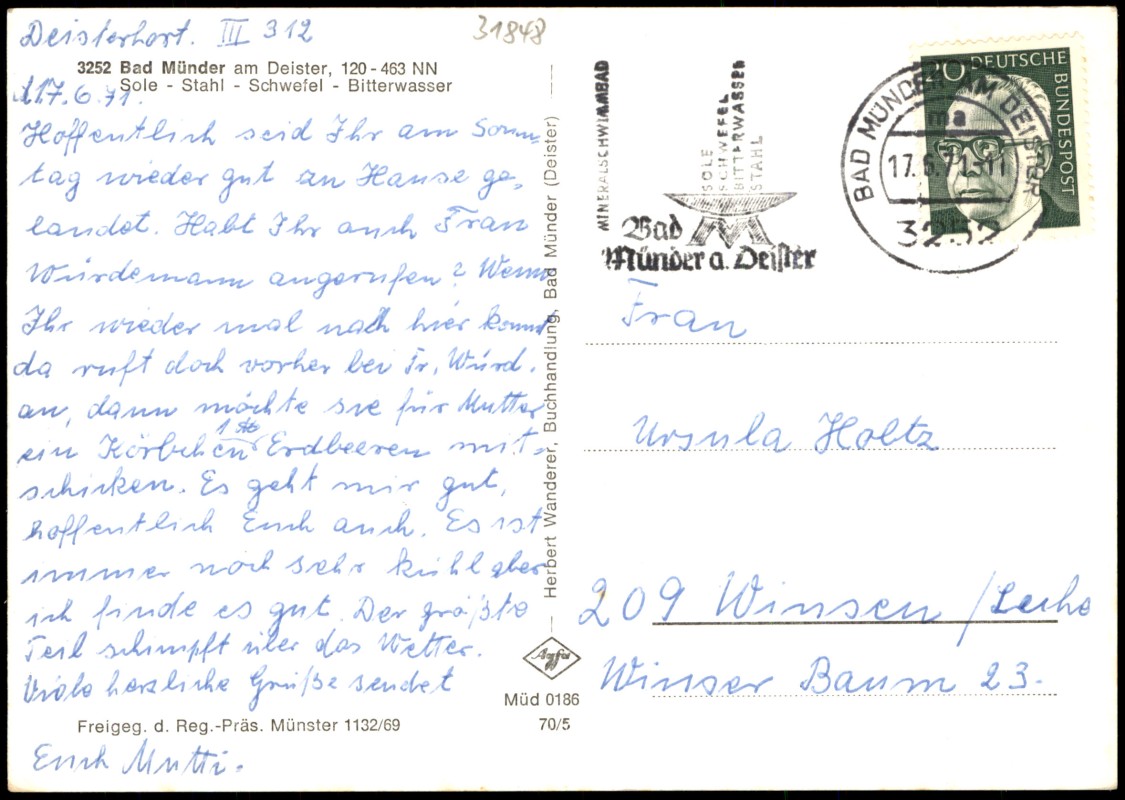 Deisterhort. III 312
31848
3252 Bad Münder am Deister, 120-463 NN
Sole - Stahl - Schwefel - Bitterwasser
17.6.71.
Hoffentlich seid Ihr am Sonn-
tag wieder gut zu Hause ge-
landet. Habt Ihr auch Frau
Würdemann angerufen? Wenn
Ihr wieder mal nach hier kommt
da ruft doch vorher bei Fr. Würd.
an, dann möchte sie für Mutter
ein Körbchen Erdbeeren mit-
schicken. Es geht mir gut,
hoffentlich Euch auch. Es ist
immer noch sehr kühl aber
ich finde es gut. Der größte
Teil schimpft über das Wetter.
Viele herzliche Grüße sendet
Freigeg. d. Reg.-Präs. Münster 1132/69
Euch Mutti.
Herbert Wanderer, Buchhandlung, Bad Münder (Deister)
Agfa
Müd 0186
70/5
MINERALSCHWIMMBAD
SOLE
SCHWEFEL
BITTERWASSER
STAHL
Bad
Münder a. Deister
BAD MÜNDER AM DEISTER
ma
17.6.71-11
3252
20 DEUTSCHE BUNDESPOST
Frau
Ursula Holtz
209 Winsen/Luhe
Winser Baum 23.